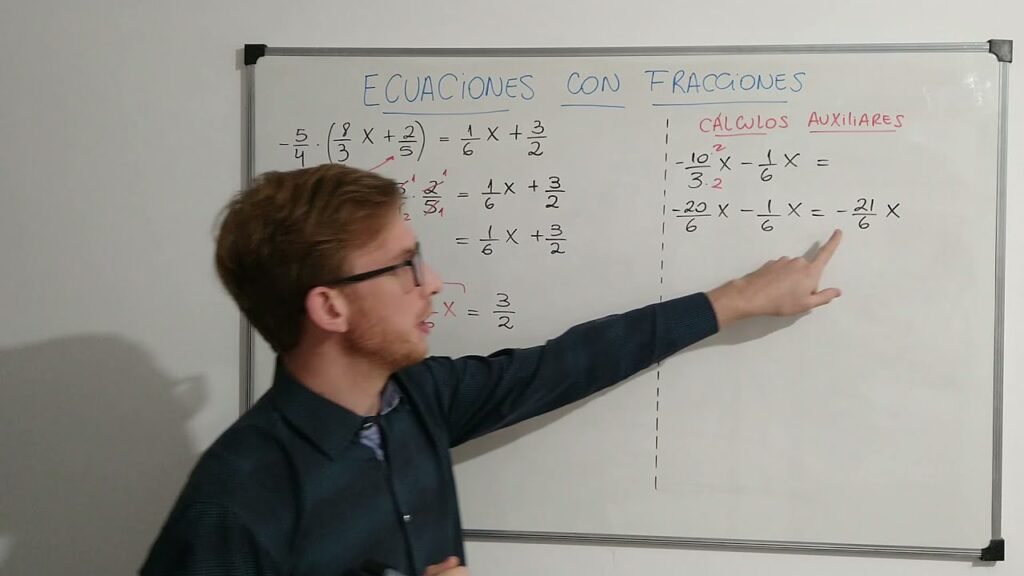 ECUACIONES CON FRACCIONES
-5/4 · (8/3 X + 2/5) = 1/6 X + 3/2
2/5 = 1/6 X + 3/2
= 1/6 X + 3/2
X = 3/2
CÁLCULOS AUXILIARES
-10/3 X - 1/6 X =
2
·2
-20/6 X - 1/6 X = -21/6 X